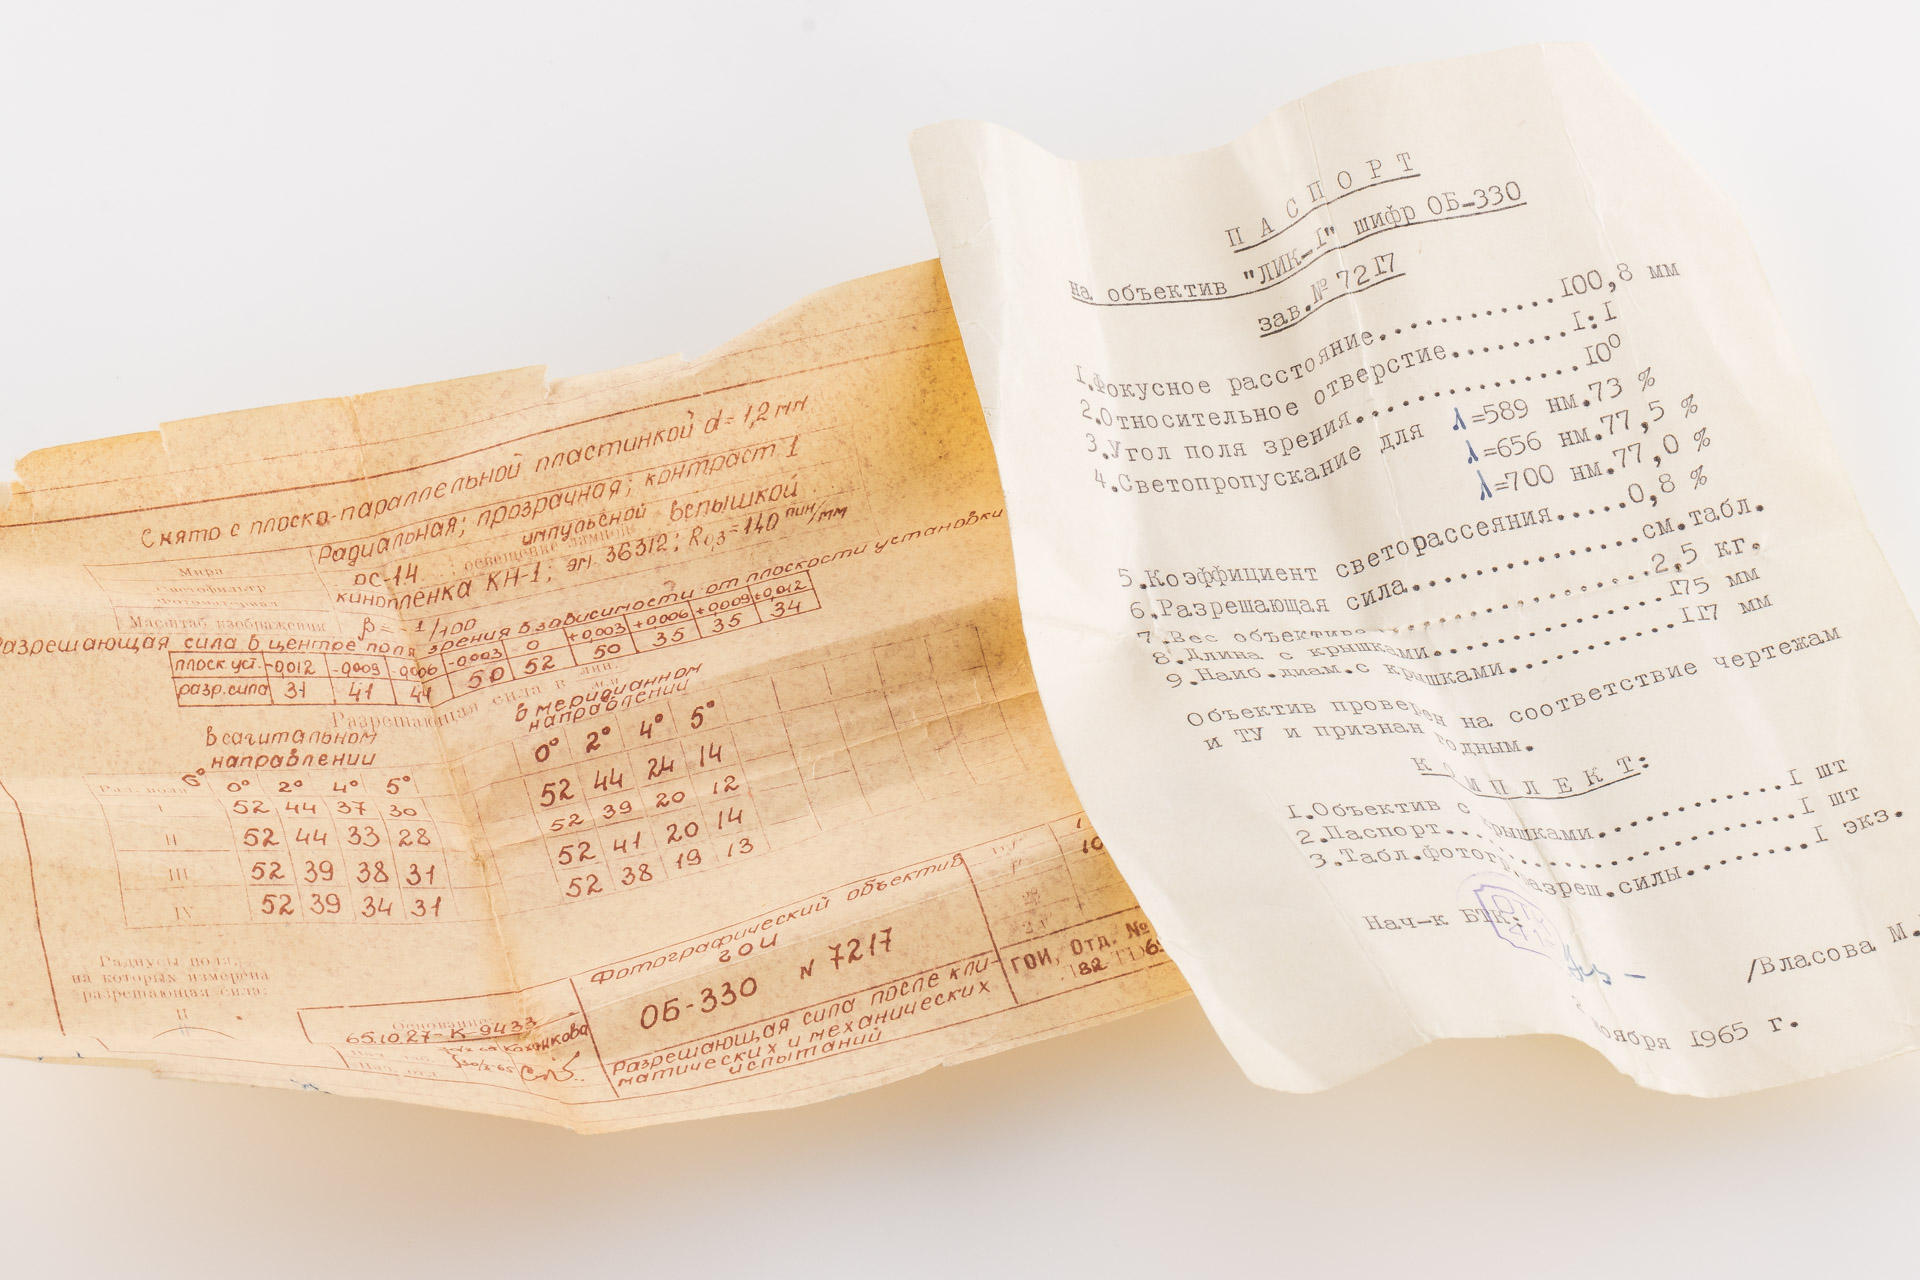 Снято с плоско-параллельной пластинкой d=1,2мм
Мира Радиальная; прозрачная; контраст 1
Светофильтр ОС-14 освещение лампой импульсной вспышкой
Фотоматериал кинопленка КН-1; эм. 36312; R0,3=140 лин/мм
Масштаб изображения β = -1/100
Разрешающая сила в центре поля зрения в зависимости от плоскости установки
плоск.уст. -0,012 -0,009 -0,006 -0,003 0 +0,003 +0,006 +0,009 +0,012
разр.сила 31 41 44 50 52 50 35 35 34
Разрешающая сила в лин.
мм
в сагитальном
направлении
в меридианном
направлении
0° 2° 4° 5° 0° 2° 4° 5°
I 52 44 37 30 52 44 24 14
II 52 44 33 28 52 39 20 12
III 52 39 38 31 52 41 20 14
IV 52 39 34 31 52 38 19 13
Радиусы поля,
на которых измерена
разрешающая сила:
II
Основание:
65.10.27-К-9433
Фотографический объектив
ГОИ
ОБ-330 N 7217
Разрешающая сила после кли-
матических и механических
испытаний
ГОИ, Отд. №
П А С П О Р Т
на объектив "ЛИК-I" шифр ОБ-330
зав.№ 7217
1.Фокусное расстояние............100,8 мм
2.Относительное отверстие........I:I
3.Угол поля зрения.............10°
4.Светопропускание для λ=589 нм.73 %
λ=656 нм.77,5 %
λ=700 нм.77,0 %
5.Коэффициент светорассеяния.....0,8 %
6.Разрешающая сила..............см.табл.
7.Вес объектива................2,5 кг.
8.Длина с крышками..............175 мм
9.Наиб.диам.с крышками...........117 мм
Объектив проверен на соответствие чертежам
и ТУ и признан годным.
К О М П Л Е К Т:
1.Объектив с крышками...........I шт
2.Паспорт.....................I шт
3.Табл.фотогр.разреш.силы.......I экз.
Нач-к БТК:
/Власова М.
ноября 1965 г.